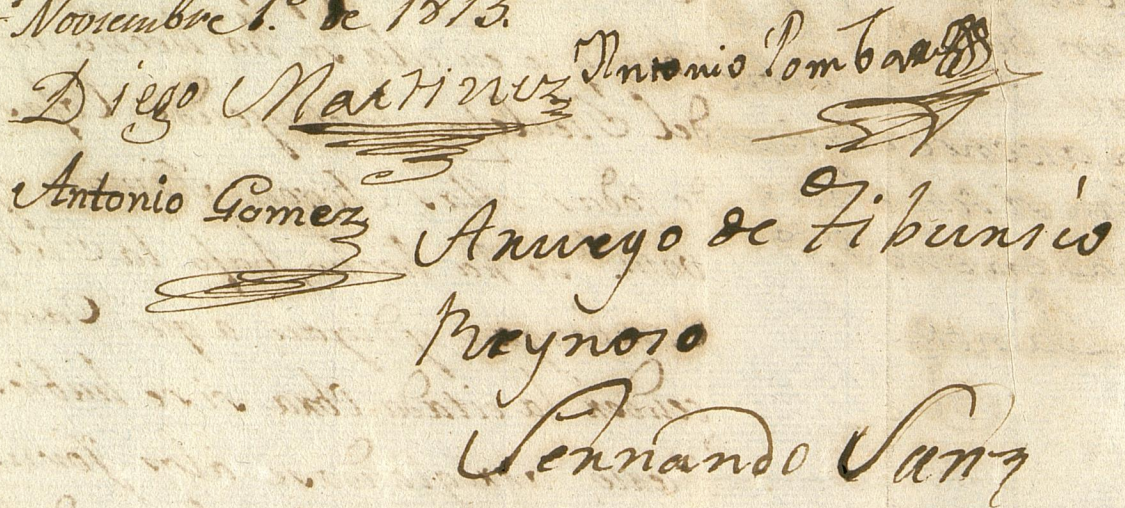 Noviembre 1.º de 1813.
Diego Martinez
Antonio Pombar
Antonio Gomez
Aruego de Tibursio
Reynoso
Fernando Sanz